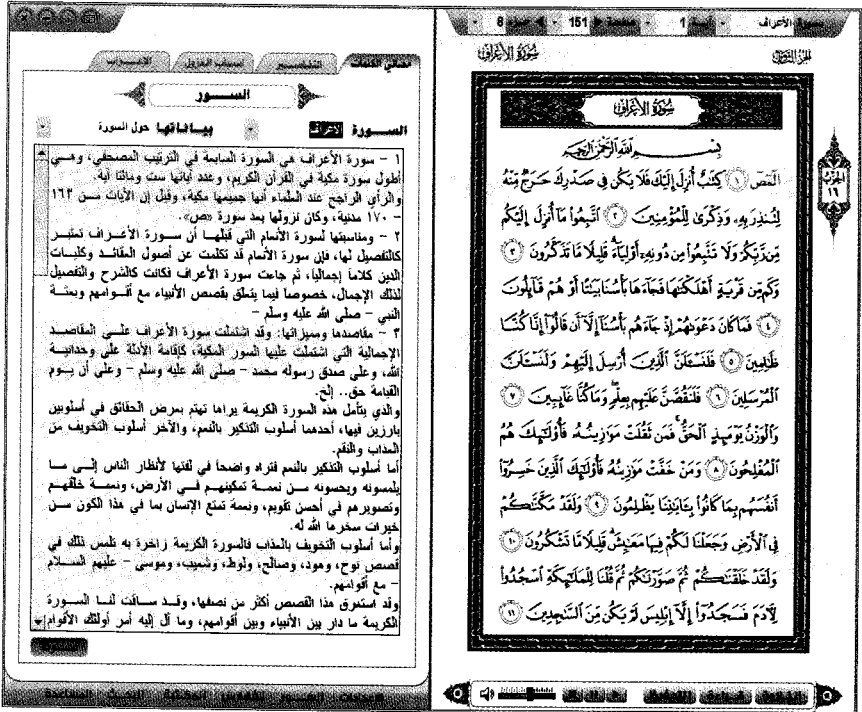 سورة الأعراف - آية 1 - صفحة 151 - جزء 8
الجزء الثامن
سورة الأعراف
سورة الأعراف
بسم الله الرحمن الرحيم
الٓمٓصٓ ١ كِتَٰبٌ أُنزِلَ إِلَيْكَ فَلَا يَكُن فِى صَدْرِكَ حَرَجٌ مِّنْهُ
لِتُنذِرَ بِهِۦ وَذِكْرَىٰ لِلْمُؤْمِنِينَ ٢ ٱتَّبِعُوا۟ مَآ أُنزِلَ إِلَيْكُم
مِّن رَّبِّكُمْ وَلَا تَتَّبِعُوا۟ مِن دُونِهِۦٓ أَوْلِيَآءَ قَلِيلًا مَّا تَذَكَّرُونَ ٣
وَكَم مِّن قَرْيَةٍ أَهْلَكْنَٰهَا فَجَآءَهَا بَأْسُنَا بَيَٰتًا أَوْ هُمْ قَآئِلُونَ
٤ فَمَا كَانَ دَعْوَىٰهُمْ إِذْ جَآءَهُم بَأْسُنَآ إِلَّآ أَن قَالُوٓا۟ إِنَّا كُنَّا
ظَٰلِمِينَ ٥ فَلَنَسْـَٔلَنَّ ٱلَّذِينَ أُرْسِلَ إِلَيْهِمْ وَلَنَسْـَٔلَنَّ
ٱلْمُرْسَلِينَ ٦ فَلَنَقُصَّنَّ عَلَيْهِم بِعِلْمٍ وَمَا كُنَّا غَآئِبِينَ ٧
وَٱلْوَزْنُ يَوْمَئِذٍ ٱلْحَقُّ فَمَن ثَقُلَتْ مَوَٰزِينُهُۥ فَأُو۟لَٰٓئِكَ هُمُ
ٱلْمُفْلِحُونَ ٨ وَمَنْ خَفَّتْ مَوَٰزِينُهُۥ فَأُو۟لَٰٓئِكَ ٱلَّذِينَ خَسِرُوٓا۟
أَنفُسَهُم بِمَا كَانُوا۟ بِـَٔايَٰتِنَا يَظْلِمُونَ ٩ وَلَقَدْ مَكَّنَّٰكُمْ
فِى ٱلْأَرْضِ وَجَعَلْنَا لَكُمْ فِيهَا مَعَٰيِشَ قَلِيلًا مَّا تَشْكُرُونَ ١٠
وَلَقَدْ خَلَقْنَٰكُمْ ثُمَّ صَوَّرْنَٰكُمْ ثُمَّ قُلْنَا لِلْمَلَٰٓئِكَةِ ٱسْجُدُوا۟
لِءَادَمَ فَسَجَدُوٓا۟ إِلَّآ إِبْلِيسَ لَمْ يَكُن مِّنَ ٱلسَّٰجِدِينَ ١١
الحزب
١٦
معاني الكلمات التفسير أسباب النزول الإعراب
الســور
الســورة الأعراف بياناتها حول السورة
١ - سورة الأعراف هي السورة السابعة في الترتيب المصحفي، وهي
أطول سورة مكية في القرآن الكريم، وعدد آياتها ست ومائتا آية.
والرأي الراجح عند العلماء أنها جميعها مكية، وقيل إن الآيات من ١٦٣
- ١٧٠ مدنية، وكان نزولها بعد سورة «ص».
٢ - ومناسبتها لسورة الأنعام التي قبلها أن سورة الأعراف تعتبر
كالتفصيل لها، فإن سورة الأنعام قد تكلمت عن أصول العقائد وكليات
الدين كلاماً إجمالياً، ثم جاءت سورة الأعراف فكانت كالشرح والتفصيل
لذلك الإجمال، خصوصاً فيما يتعلق بقصص الأنبياء مع أقوامهم وبعثة
النبي - صلى الله عليه وسلم -
٣ - مقاصدها وميزاتها: وقد اشتملت سورة الأعراف على المقاصد
الإجمالية التي اشتملت عليها السور المكية، كإقامة الأدلة على وحدانية
الله، وعلى صدق رسوله محمد - صلى الله عليه وسلم - وعلى أن يوم
القيامة حق.. إلخ.
والذي يتأمل هذه السورة الكريمة يراها تهتم بعرض الحقائق في أسلوبين
بارزين فيها، أحدهما أسلوب التذكير بالنعم، والآخر أسلوب التخويف من
العذاب والنقم.
أما أسلوب التذكير بالنعم فتراه واضحاً في لفتها لأنظار الناس إلى ما
يلمسونه ويحسونه من نعمة تمكينهم في الأرض، ونعمة خلقهم
وتصويرهم في أحسن تقويم، ونعمة تمتع الإنسان بما في هذا الكون من
خيرات سخرها الله له.
وأما أسلوب التخويف بالعذاب فالسورة الكريمة زاخرة به تلمس ذلك في
قصص نوح، وهود، وصالح، ولوط، وشعيب، وموسى - عليهم السلام
- مع أقوامهم.
وقد استغرق هذا القصص أكثر من نصفها، وقد ساقت لنا السورة
الكريمة ما دار بين الأنبياء وبين أقوامهم، وما آل إليه أمر أولئك الأقوام